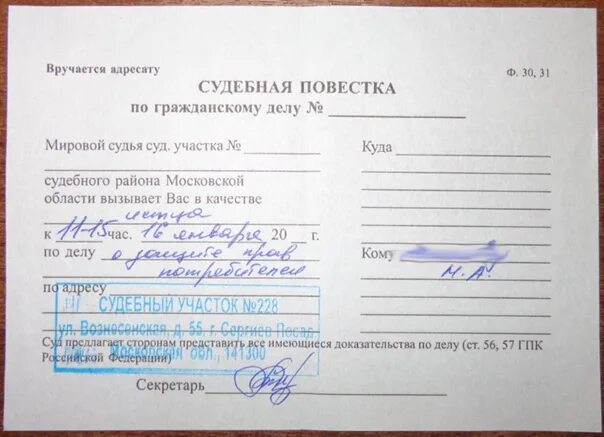 Вручается адресату
Ф. 30, 31
СУДЕБНАЯ ПОВЕСТКА
по гражданскому делу №
Мировой судья суд. участка №
судебного района Московской
области вызывает Вас в качестве
истца
к 11-15 час. 16 января 20 г.
по делу о защите прав
потребителей
по адресу
СУДЕБНЫЙ УЧАСТОК №228
ул. Вознесенская, д. 55, г. Сергиев Посад
Московская обл., 141300
Куда
Кому
М. А.
Суд предлагает сторонам представить все имеющиеся доказательства по делу (ст. 56, 57 ГПК
Российской Федерации)
Секретарь